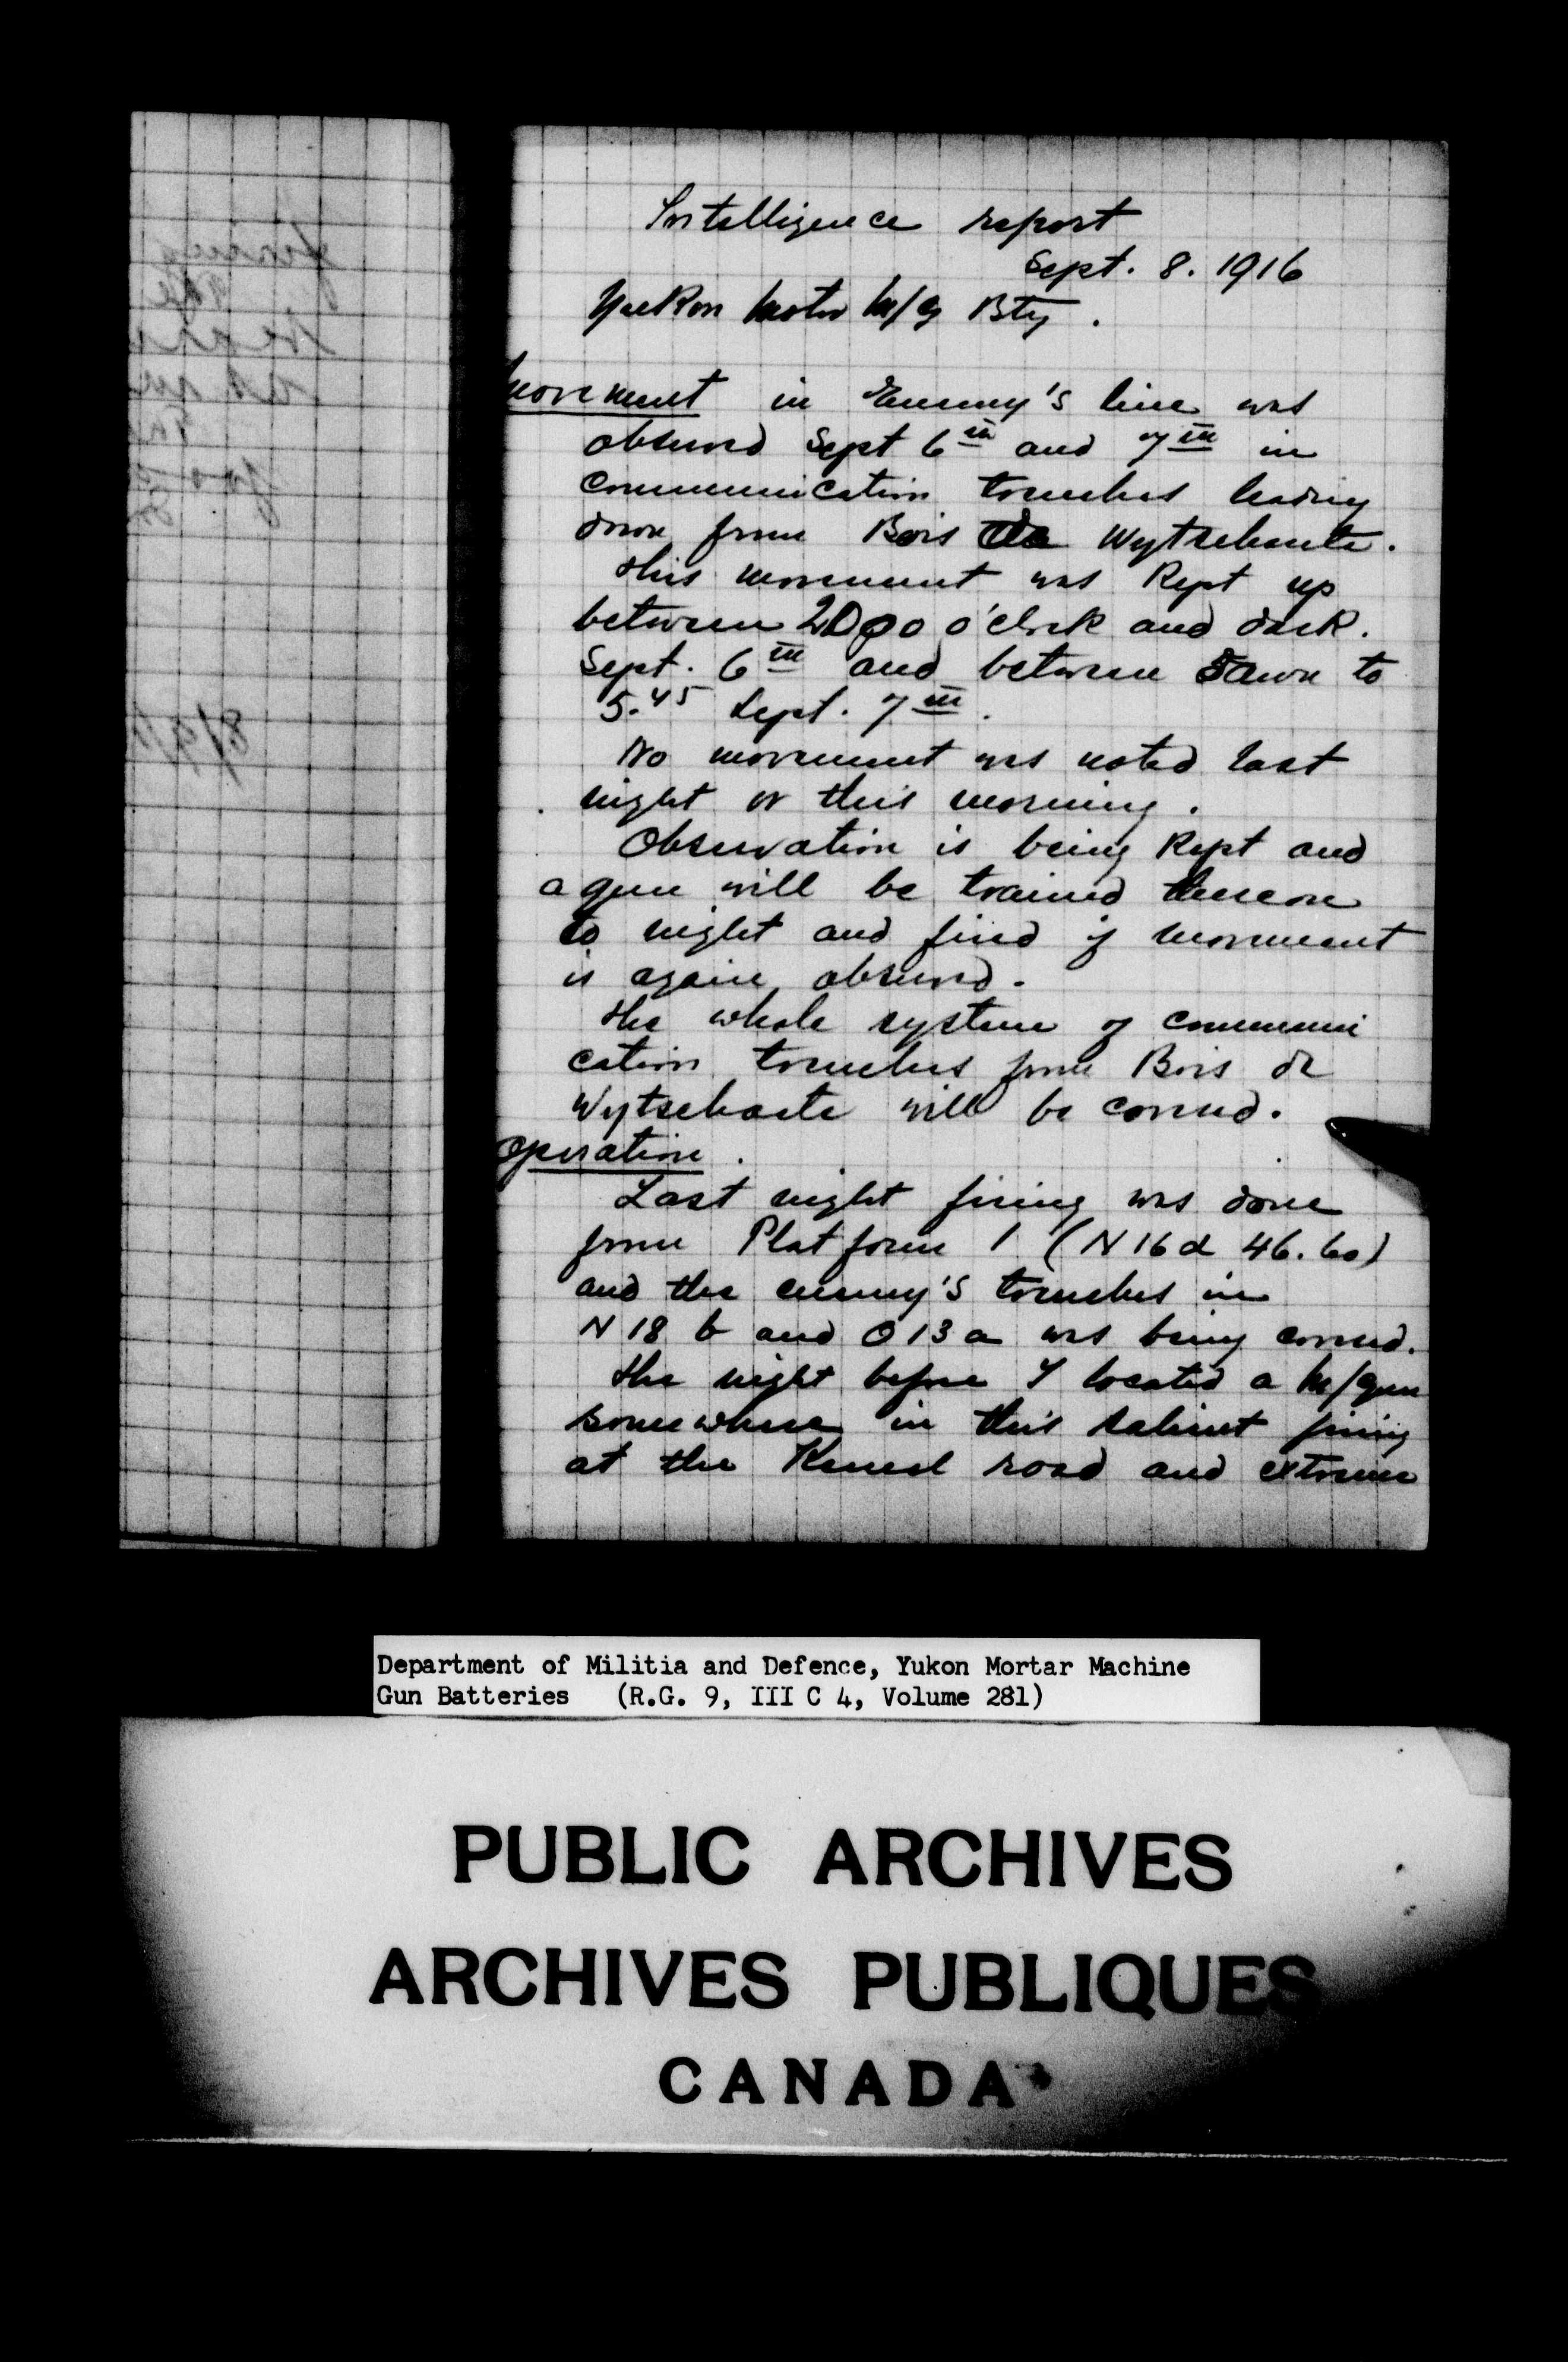 Intelligence report
Sept. 8. 1916
Yukon Motor M/G Bty.
Movement in Enemy's line was
observed Sept 6th and 7th in
communication trenches leading
down from Bois de Wytschaete.
This movement was kept up
between 2000 o'clock and dark.
Sept. 6th and between dawn to
5.45 Sept. 7th.
No movement was noted last
night or this morning.
Observation is being kept and
a gun will be trained thereon
to night and fired if movement
is again observed.
The whole system of communi
cation trenches from Bois de
Wytschaete will be covered.
Operation.
Last night firing was done
from Platform 1 (N16d 46.60)
and the enemy's trenches in
N 18 b and O 13 a was being covered.
The night before I located a M/gun
somewhere in this salient firing
at the Kemmel road and extreme
Department of Militia and Defence, Yukon Mortar Machine
Gun Batteries (R.G. 9, III C 4, Volume 281)
PUBLIC ARCHIVES
ARCHIVES PUBLIQUES
CANADA